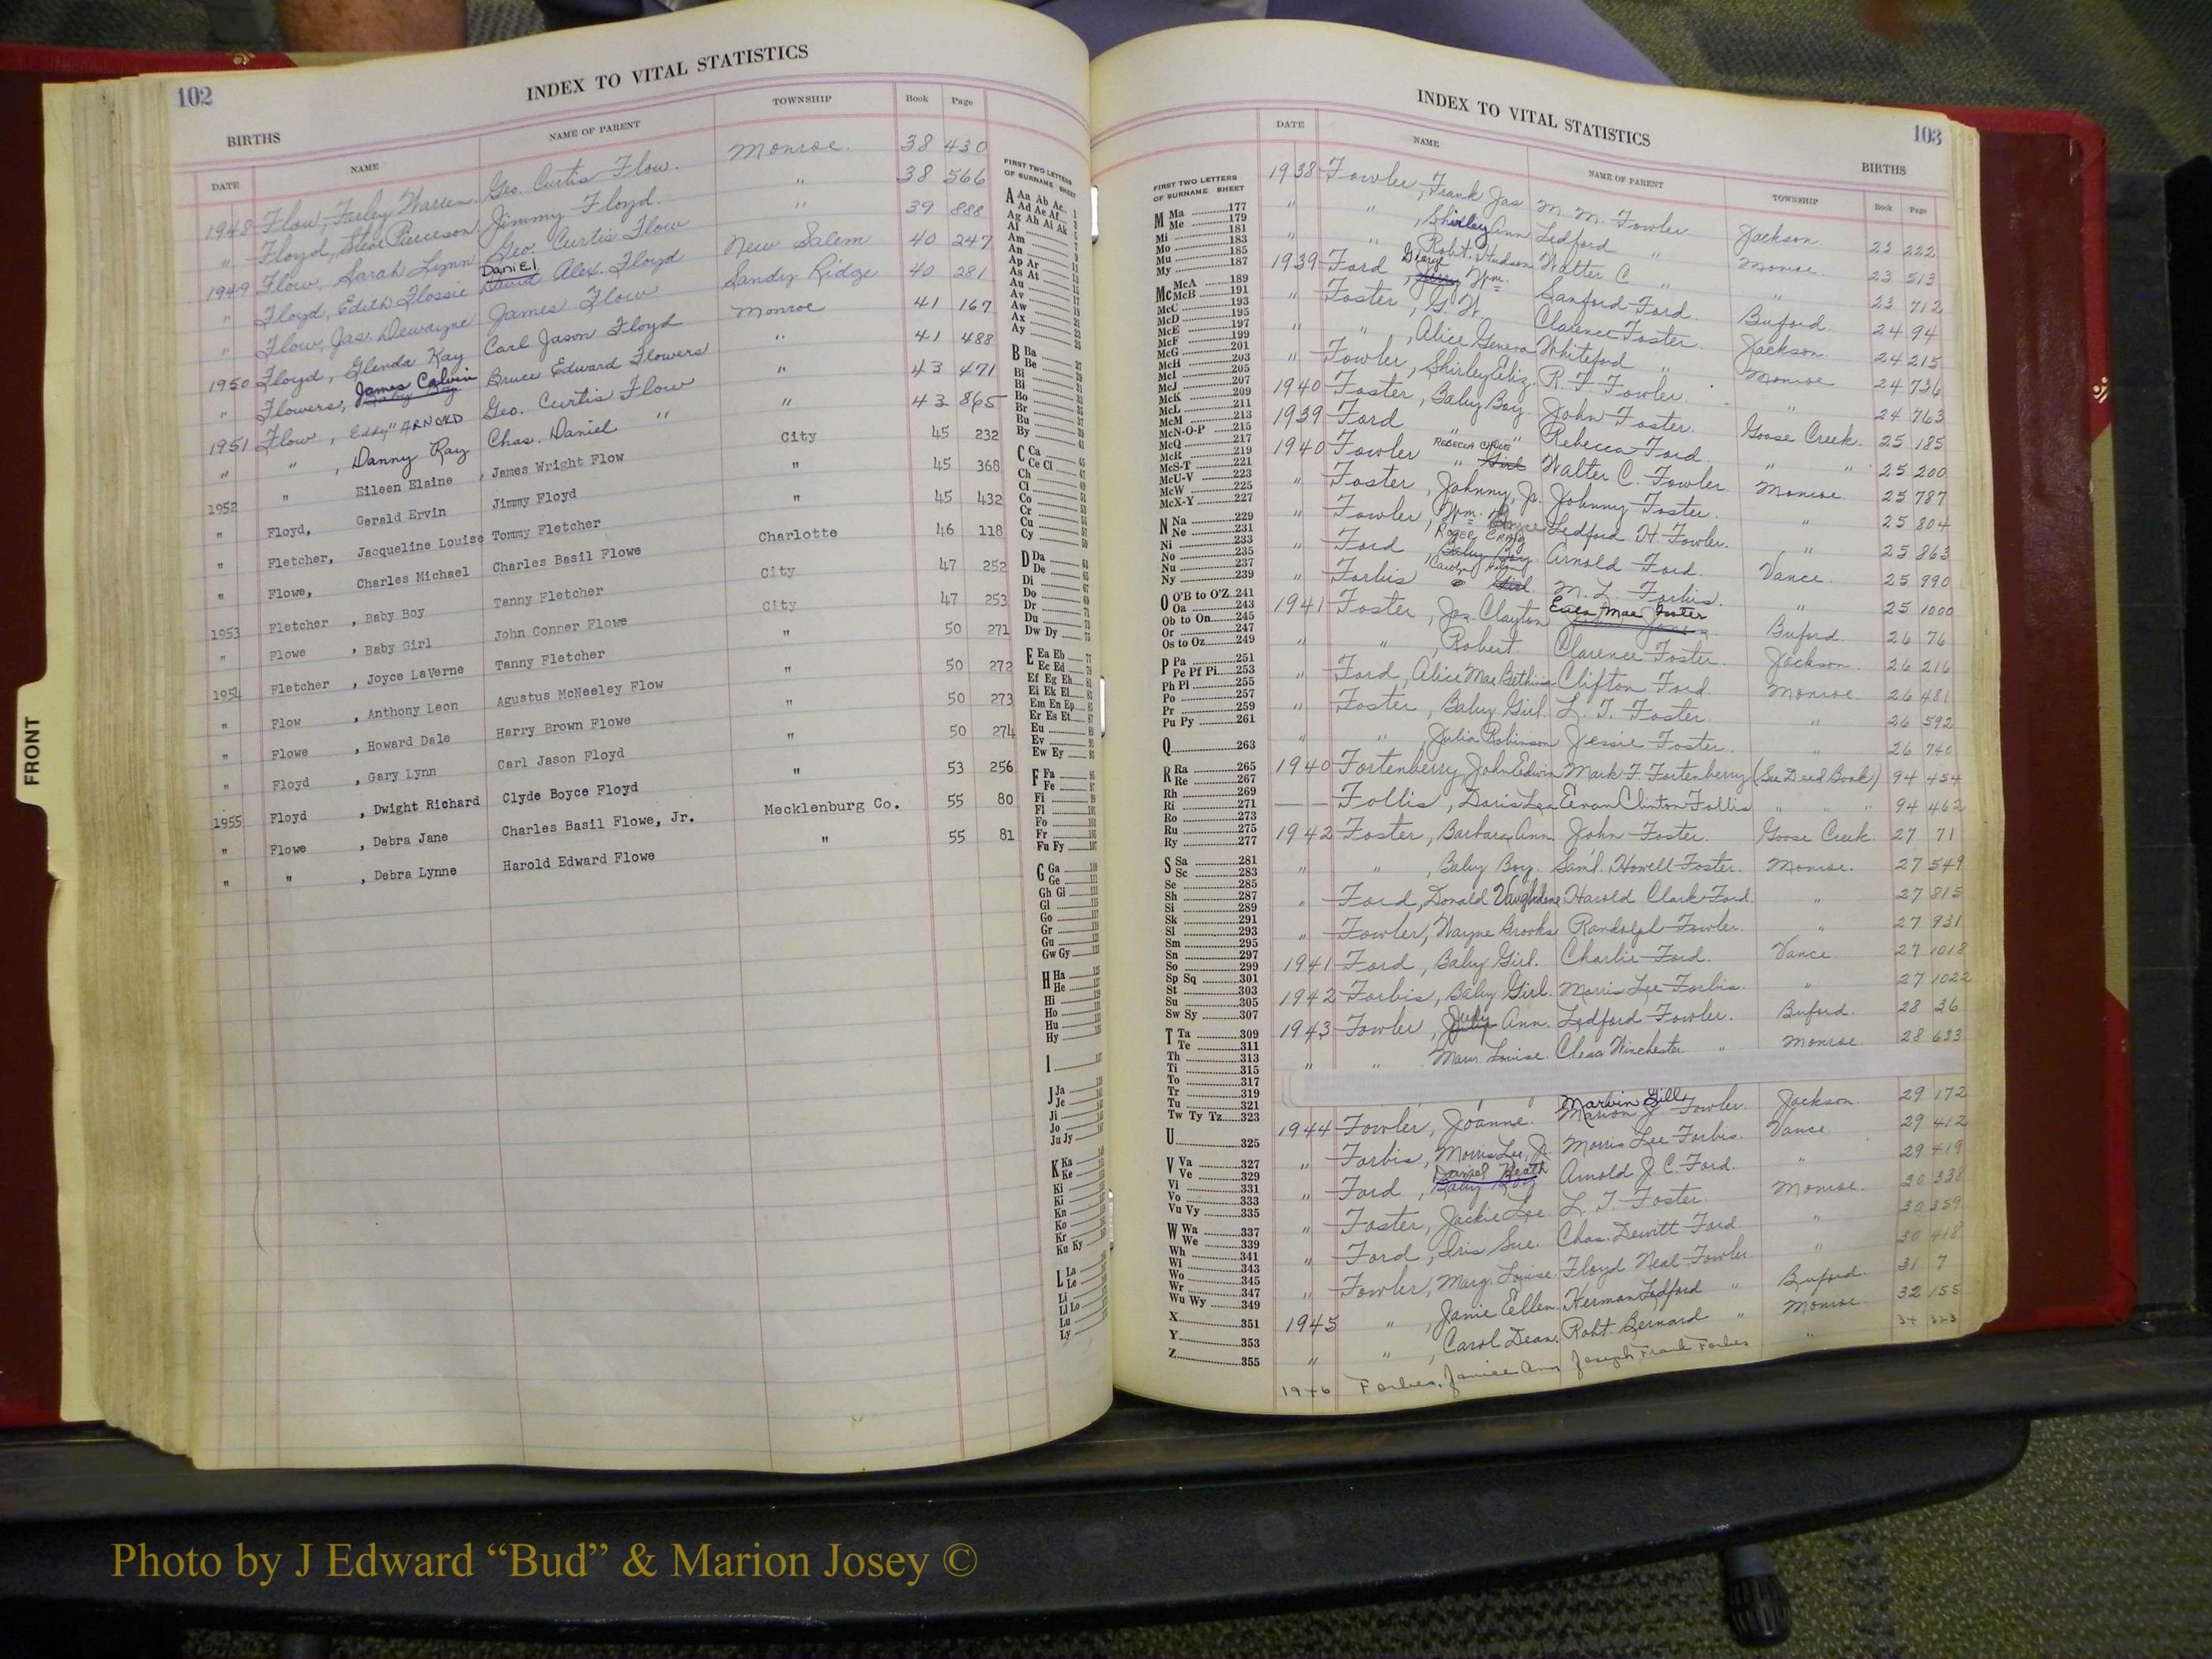 102
INDEX TO VITAL STATISTICS
BIRTHS
DATE NAME NAME OF PARENT TOWNSHIP Book Page
1948 Flow, Farley Warren Geo. Curtis Flow. Monroe. 38 430
" Floyd, Steve Pierceson Jimmy Floyd. " 38 566
1949 Flow, Sarah Lynn Geo. Curtis Flow " 39 888
" Floyd, Edith Flossie Daniel David Alex. Floyd New Salem 40 247
" Flow, Jas. Dewayne James Flow Sandy Ridge 40 281
1950 Floyd, Glenda Kay Carl Jason Floyd Monroe 41 167
" Flowers, James Calvin Baby Boy Bruce Edward Flowers " 41 488
1951 Flow, Eddy ARNOLD Geo. Curtis Flow " 43 471
" " , Danny Ray Chas. Daniel " " 43 865
1952 " Eileen Elaine , James Wright Flow City 45 232
" Floyd, Gerald Ervin Jimmy Floyd " 45 368
" Fletcher, Jacqueline Louise Tommy Fletcher " 45 432
" Flowe, Charles Michael Charles Basil Flowe Charlotte 46 118
1953 Fletcher , Baby Boy Tanny Fletcher City 47 252
" Flowe , Baby Girl John Conner Flowe City 47 253
1954 Fletcher , Joyce LaVerne Tanny Fletcher " 50 271
" Flow , Anthony Leon Agustus McNeeley Flow " 50 272
" Flowe , Howard Dale Harry Brown Flowe " 50 273
" Floyd , Gary Lynn Carl Jason Floyd " 50 274
1955 Floyd , Dwight Richard Clyde Boyce Floyd " 53 256
" Flowe , Debra Jane Charles Basil Flowe, Jr. Mecklenburg Co. 55 80
" " , Debra Lynne Harold Edward Flowe " 55 81
FRONT
FIRST TWO LETTERS
OF SURNAME SHEET
A Aa Ab Ac 1
Ad Ae Af
Ag Ah Ai Ak
Al
Am
An
Ap Ar
As At
Au
Av
Aw
Ax
Ay
B Ba
Be
Bi
Bl
Bo
Br
Bu
By
C Ca
Ce Ci
Ch
Cl
Co
Cr
Cu
Cy
D Da
De
Di
Do
Dr
Du
Dw Dy
E Ea Eb
Ec Ed
Ef Eg Eh
Ei Ek El
Em En Ep
Er Es Et
Eu
Ev
Ew Ey
F Fa
Fe
Fi
Fl
Fo
Fr
Fu Fy
G Ga
Ge
Gh Gi
Gl
Go
Gr
Gu
Gw Gy
H Ha
He
Hi
Ho
Hu
Hy
I
J Ja
Je
Ji
Jo
Ju Jy
K Ka
Ke
Ki
Kl
Kn
Ko
Kr
Ku Ky
L La
Le
Li
Ll Lo
Lu
Ly
INDEX TO VITAL STATISTICS
103
BIRTHS
FIRST TWO LETTERS
OF SURNAME SHEET
M Ma 177
Me 179
Mi 181
Mo 183
Mu 185
My 187
Mc McA 189
McB 191
McC 193
McD 195
McE 197
McF 199
McG 201
McH 203
McI 205
McJ 207
McK 209
McL 211
McM 213
McN-O-P 215
McQ 217
McR 219
McS-T 221
McU-V 223
McW 225
McX-Y 227
N Na 229
Ne 231
Ni 233
No 235
Nu 237
Ny 239
O O'B to O'Z 241
Oa 243
Ob to On 245
Or 247
Os to Oz 249
P Pa 251
Pe Pf Pi 253
Ph Pl 255
Po 257
Pr 259
Pu Py 261
Q 263
R Ra 265
Re 267
Rh 269
Ri 271
Ro 273
Ru 275
Ry 277
S Sa 281
Sc 283
Se 285
Sh 287
Si 289
Sk 291
Sl 293
Sm 295
Sn 297
So 299
Sp Sq 301
St 303
Su 305
Sw Sy 307
T Ta 309
Te 311
Th 313
Ti 315
To 317
Tr 319
Tu 321
Tw Ty Tz 323
U 325
V Va 327
Ve 329
Vi 331
Vo 333
Vu Vy 335
W Wa 337
We 339
Wh 341
Wi 343
Wo 345
Wr 347
Wu Wy 349
X 351
Y 353
Z 355
DATE NAME NAME OF PARENT TOWNSHIP Book Page
1938 Fowler, Frank Jas M. M. Fowler Jackson. 23 222
" " , Shirley Ann Ledford " Monroe. 23 513
" " Robt. Hudson Walter C " " 23 712
1939 Ford, Wm. Sanford Ford. Buford. 24 94
" Foster, G. W. Clarence Foster. Jackson. 24 215
" " , Alice Geneva Whiteford " Monroe 24 736
" Fowler, Shirley Eliz. R. F. Fowler. " 24 763
1940 Foster, Baby Boy. John Foster. Goose Creek. 25 185
1939 Ford " " Rebecca Ford. " " 25 200
1940 Fowler REBECCA " Girl Walter C. Fowler. Monroe. 25 787
" Foster, Johnny, Jr. Johnny Foster. " 25 804
" Fowler, Wm. Bruce Ledford H. Fowler. " 25 863
" Ford, ROGER CRAIG Baby Boy Arnold Ford. Vance. 25 990
" Forbis Carolyn Girl. M. L. Forbis. " 25 1000
1941 Foster, Jas. Clayton Eula Mae Foster Buford. 26 76
" " , Robert. Clarence Foster. Jackson. 26 216
" Ford, Alice Mae Bethina Clifton Ford. Monroe. 26 481
" Foster, Baby Girl. L. T. Foster. " 26 592
" " , Julia Robinson Jessie Foster. " 26 740
1940 Fortenberry, John Edwin Mark F. Fortenberry (See Deed Book) 94 454
— — Follis, Doris Lee Evan Clinton Follis " " " 94 462
1942 Foster, Barbara Ann. John Foster. Goose Creek. 27 71
" " , Baby Boy. Saml. Howell Foster. Monroe. 27 549
" Ford, Donald Vaughdene Harold Clark Ford. " 27 815
" Fowler, Wayne Brooks Randolph Fowler. " 27 931
1941 Ford, Baby Girl. Charlie Ford. Vance 27 1018
1942 Forbis, Baby Girl. Morris Lee Forbis. " 27 1022
1943 Fowler, Judy Ann. Ledford Fowler. Buford. 28 36
" " Mary Louise. Cleaa Winchester " Monroe. 28 633
1944 Fowler, Joanne. Marvin Gill Marion J. Fowler. Jackson. 29 172
" Forbis, Morris Lee, Jr. Morris Lee Forbis. Vance 29 412
" Ford, Daniel Heath Baby Boy. Arnold J. C. Ford. " 29 419
" Foster, Jackie Lee L. T. Foster. Monroe. 30 338
" Ford, Iris Sue. Chas. Dewitt Ford. " 30 359
" Fowler, Marg. Louise. Floyd Neal Fowler. " 30 418
1945 " , Janie Ellen. Herman Ledford " Buford. 31 7
" " , Carol Dean. Robt. Bernard " Monroe 32 155
1946 Forbes, Janice Ann Joseph Frank Forbes " 34 323
Photo by J Edward “Bud” & Marion Josey ©